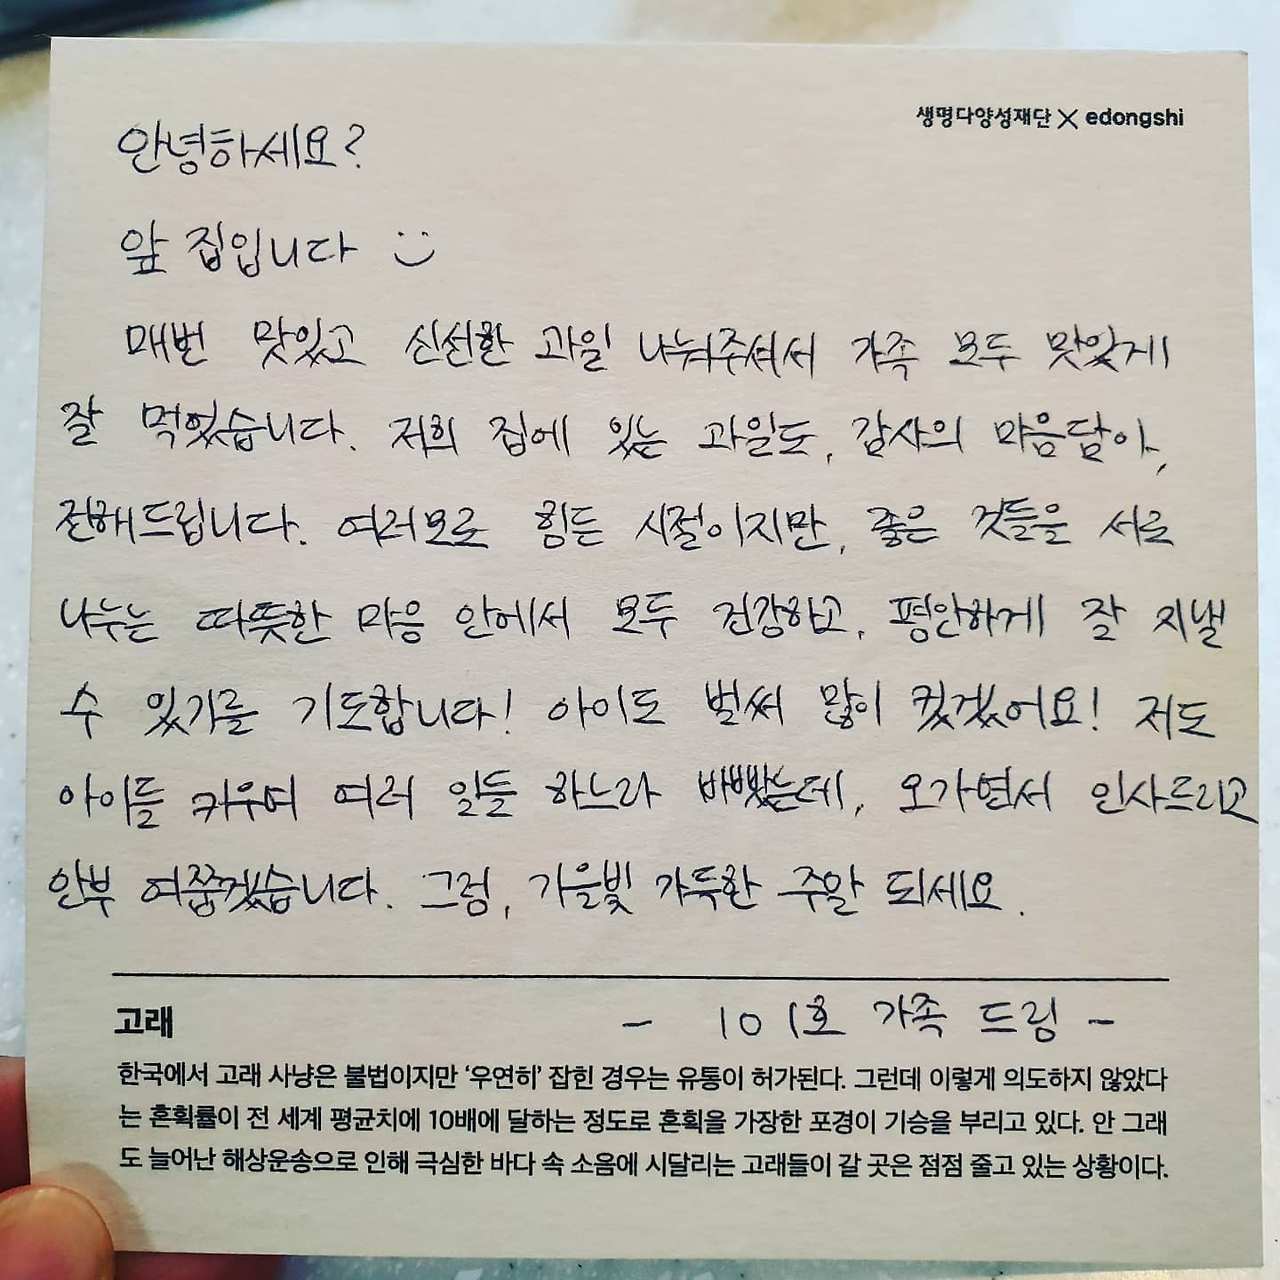 생명다양성재단 X edongshi
안녕하세요?
앞 집입니다 :)
매번 맛있고 신선한 과일 나눠주셔서 가족 모두 맛있게
잘 먹었습니다. 저희 집에 있는 과일도, 감사의 마음담아,
전해드립니다. 여러모로 힘든 시절이지만, 좋은 것들을 서로
나누는 따뜻한 마음 안에서 모두 건강하고, 평안하게 잘 지낼
수 있기를 기도합니다! 아이도 벌써 많이 컸겠어요! 저도
아이들 키우며 여러 일들 하느라 바빴는데, 오가면서 인사드리고
안부 여쭙겠습니다. 그럼, 가을빛 가득한 주말 되세요.
- 101호 가족 드림 -
고래
한국에서 고래 사냥은 불법이지만 ‘우연히’ 잡힌 경우는 유통이 허가된다. 그런데 이렇게 의도하지 않았다
는 혼획률이 전 세계 평균치에 10배에 달하는 정도로 혼획을 가장한 포경이 기승을 부리고 있다. 안 그래
도 늘어난 해상운송으로 인해 극심한 바다 속 소음에 시달리는 고래들이 갈 곳은 점점 줄고 있는 상황이다.